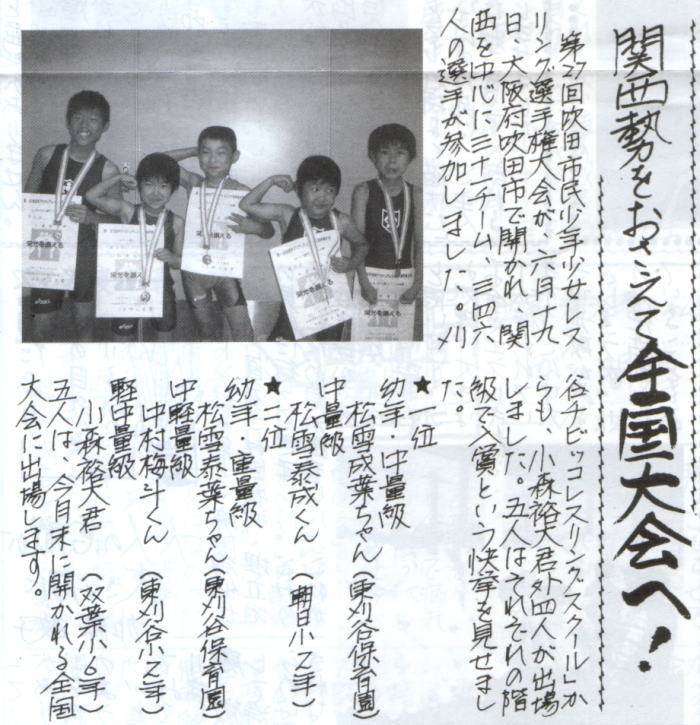 関西勢をおさえて全国大会へ！
第27回吹田市民少年少女レス
リング選手権大会が、六月十九
日、大阪府吹田市で開かれ、関
西を中心に三十一チーム、三四六
人の選手が参加しました。刈
谷チビッコレスリングスクール」か
らも、小森裕大君外四人が出場
しました。五人はそれぞれの階
級で入賞という快挙を見せまし
た。
★一位
幼年・中量級
松雪成葉ちゃん（東刈谷保育園）
中量級
松雪泰成くん（朝日小2年）
★二位
幼年・重量級
松雪泰葉ちゃん（東刈谷保育園）
中軽量級
中村梅斗くん（東刈谷小2年）
軽中量級
小森裕大君（双葉小6年）
五人は、今月末に開かれる全国
大会に出場します。
栄光を讃える
栄光を讃える
栄光を讃える
栄光を讃える
栄光を讃える